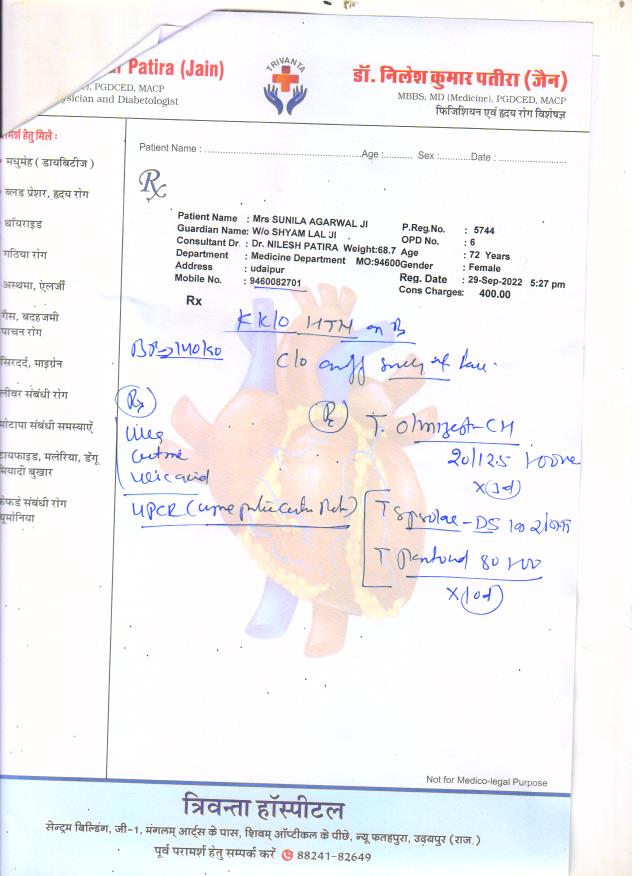 Patira (Jain)
), PGDCED, MACP
ysician and Diabetologist
TRIVANTA
डॉ. निलेश कुमार पतीरा (जैन)
MBBS, MD (Medicine), PGDCED, MACP
फिजिशियन एवं हृदय रोग विशेषज्ञ
रामर्श हेतु मिले :
मधुमेह ( डायबिटीज )
ब्लड प्रेशर, हृदय रोग
थॉयराइड
गठिया रोग
अस्थमा, एलर्जी
गैस, बदहजमी
पाचन रोग
सिरदर्द, माइग्रेन
लीवर संबंधी रोग
मोटापा संबंधी समस्याऐं
टायफाइड, मलेरिया, डेंगू
मियादी बुखार
फेफडे संबंधी रोग
यूमोनिया
Patient Name : Age : Sex : Date :
Rx
Patient Name : Mrs SUNILA AGARWAL JI P.Reg.No. : 5744
Guardian Name: W/o SHYAM LAL JI OPD No. : 6
Consultant Dr : Dr. NILESH PATIRA Weight:68.7 Age : 72 Years
Department : Medicine Department MO:94600Gender : Female
Address : udaipur Reg. Date : 29-Sep-2022 5:27 pm
Mobile No. : 9460082701 Cons Charges: 400.00
Rx
K/C/O HTN on
BP
C/O
Rx
Rx
T. Olmizest-CH
20/12.5
Uric acid
UPCR
T
-DS
T 80
Not for Medico-legal Purpose
त्रिवन्ता हॉस्पीटल
सेन्ट्रम बिल्डिंग, जी-1, मंगलम् आर्ट्स के पास, शिवम् ऑप्टीकल के पीछे, न्यू फतहपुरा, उदयपुर (राज.)
पूर्व परामर्श हेतु सम्पर्क करें 88241-82649